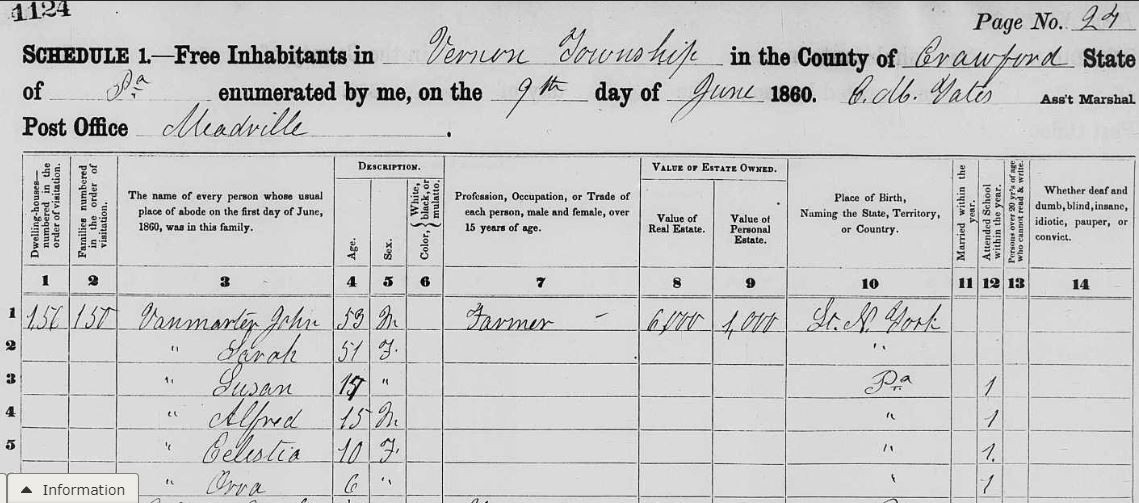 1124
Page No. 24
SCHEDULE 1.—Free Inhabitants in Vernon Township in the County of Crawford State
of Pa enumerated by me, on the 9th day of June 1860. Ass't Marshal
Post Office Meadville.
DESCRIPTION. VALUE OF ESTATE OWNED.
Dwelling-houses—numbered in the order of visitation.
Families numbered in the order of visitation.
The name of every person whose usual place of abode on the first day of June, 1860, was in this family.
Age.
Sex.
Color, { White, black, or mulatto.
Profession, Occupation, or Trade of each person, male and female, over 15 years of age.
Value of Real Estate.
Value of Personal Estate.
Place of Birth, Naming the State, Territory, or Country.
Married within the year.
Attended School within the year.
Persons over 20 yr's of age who cannot read & write.
Whether deaf and dumb, blind, insane, idiotic, pauper, or convict.
1 2 3 4 5 6 7 8 9 10 11 12 13 14
1 John 53 M Farmer – 6,000 1,000 St. N. York
2 " Sarah 51 F. "
3 " Susan 17 " Pa 1
4 " Alfred 15 M " 1
5 " Celestia 10 F. " 1
" Orva 6 " " 1
Information